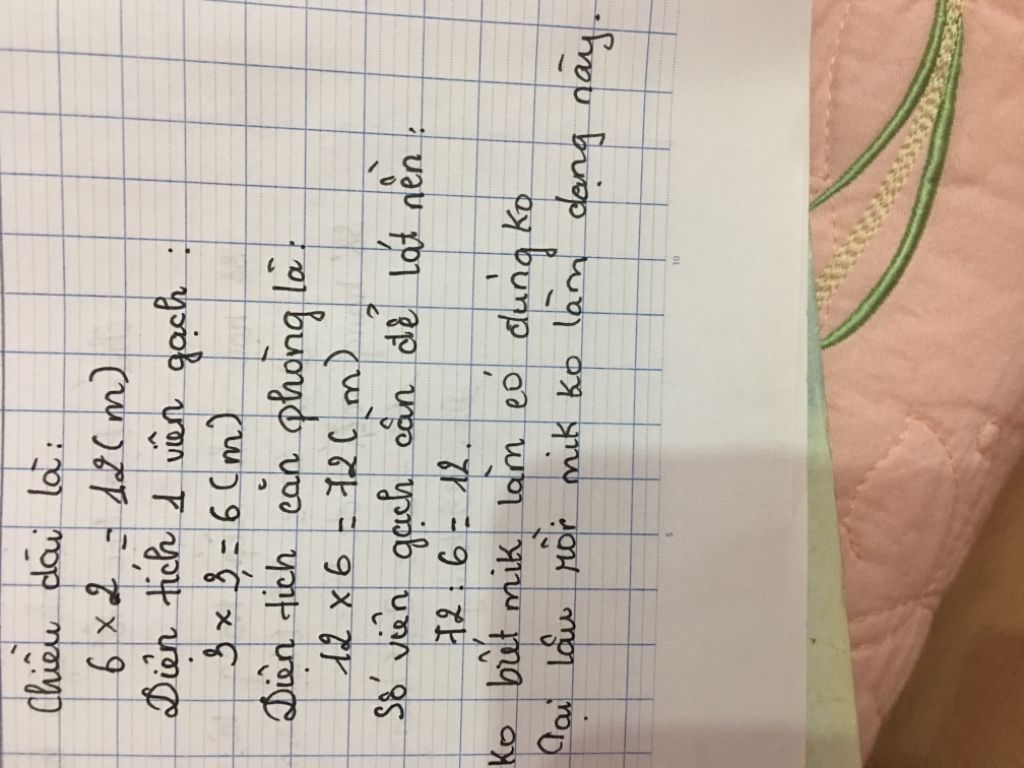 Chiều dài là:
6 x 2 = 12 (m)
Diện tích 1 viên gạch :
3 x 3 = 6 (m)
Diện tích căn phòng là:
12 x 6 = 72 (m)
Số viên gạch cần để lát nền:
72 : 6 = 12.
Ko biết mik làm có đúng ko
Tại lâu rồi mik ko làm dạng này.
5
10